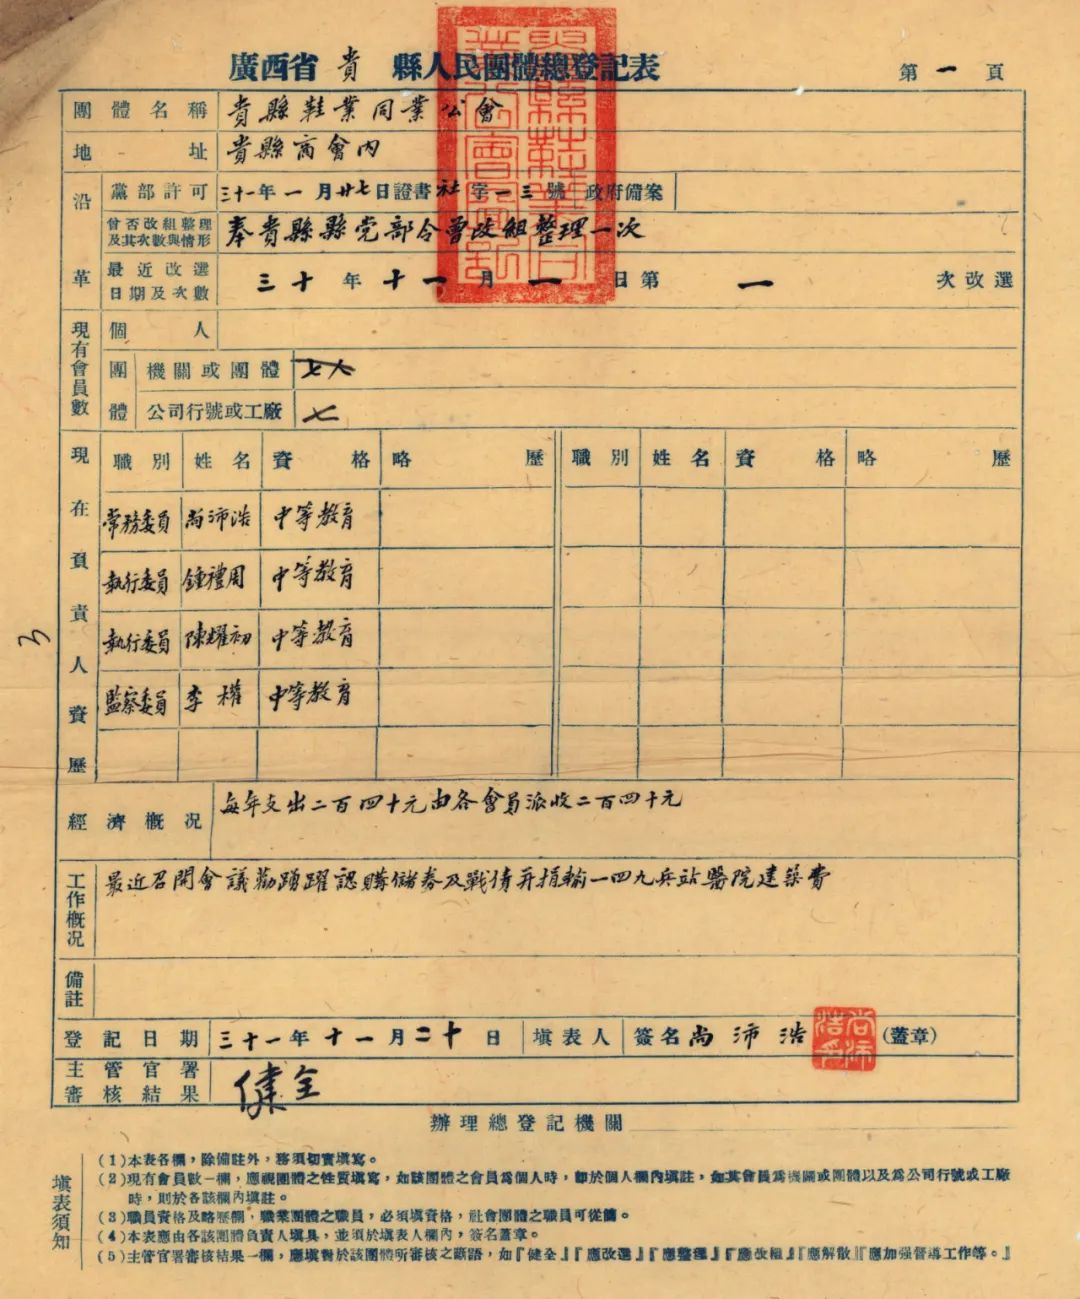 廣西省 貴 縣人民團體總登記表
第 一 頁
團體名稱 貴縣鞋業同業公會
地址 貴縣商會內
沿革
黨部許可 三十一年一月廿七日證書社字一三號 政府備案
曾否改組整理及其次數與情形 奉貴縣縣党部令曾改組整理一次
最近改選日期及次數 三十年十一月一日第一次改選
現有會員數
個人
團體 機關或團體
公司行號或工廠 七
現在負責人資歷
職別 姓名 資格 略歷 職別 姓名 資格 略歷
常務委員 尚沛浩 中等教育
執行委員 鍾禮周 中等教育
執行委員 陳耀初 中等教育
監察委員 李權 中等教育
經濟概况 每年支出二百四十元由各會員派收二百四十元
工作概况 最近召開會議勸踴躍認購儲券及戰債并捐輸一四九兵站醫院建築費
備註
登記日期 三十一年十一月二十日 填表人 簽名 尚沛浩 (蓋章)
主管官署審核結果 健全
辦理總登記機關
填表須知
(1)本表各欄，除備註外，務須切實填寫。
(2)現有會員數一欄，應視團體之性質填寫，如該團體之會員爲個人時，卽於個人欄內填註，如其會員爲機關或團體以及爲公司行號或工廠
時，則於各該欄內填註。
(3)職員資格及略歷欄，職業團體之職員，必須填資格，社會團體之職員可從簡。
(4)本表應由各該團體負責人填具，並須於填表人欄內，簽名蓋章。
(5)主管官署審核結果一欄，應填對於該團體所審核之評語，如『健全』『應改選』『應整理』『應改組』『應解散』『應加强督導工作等。』